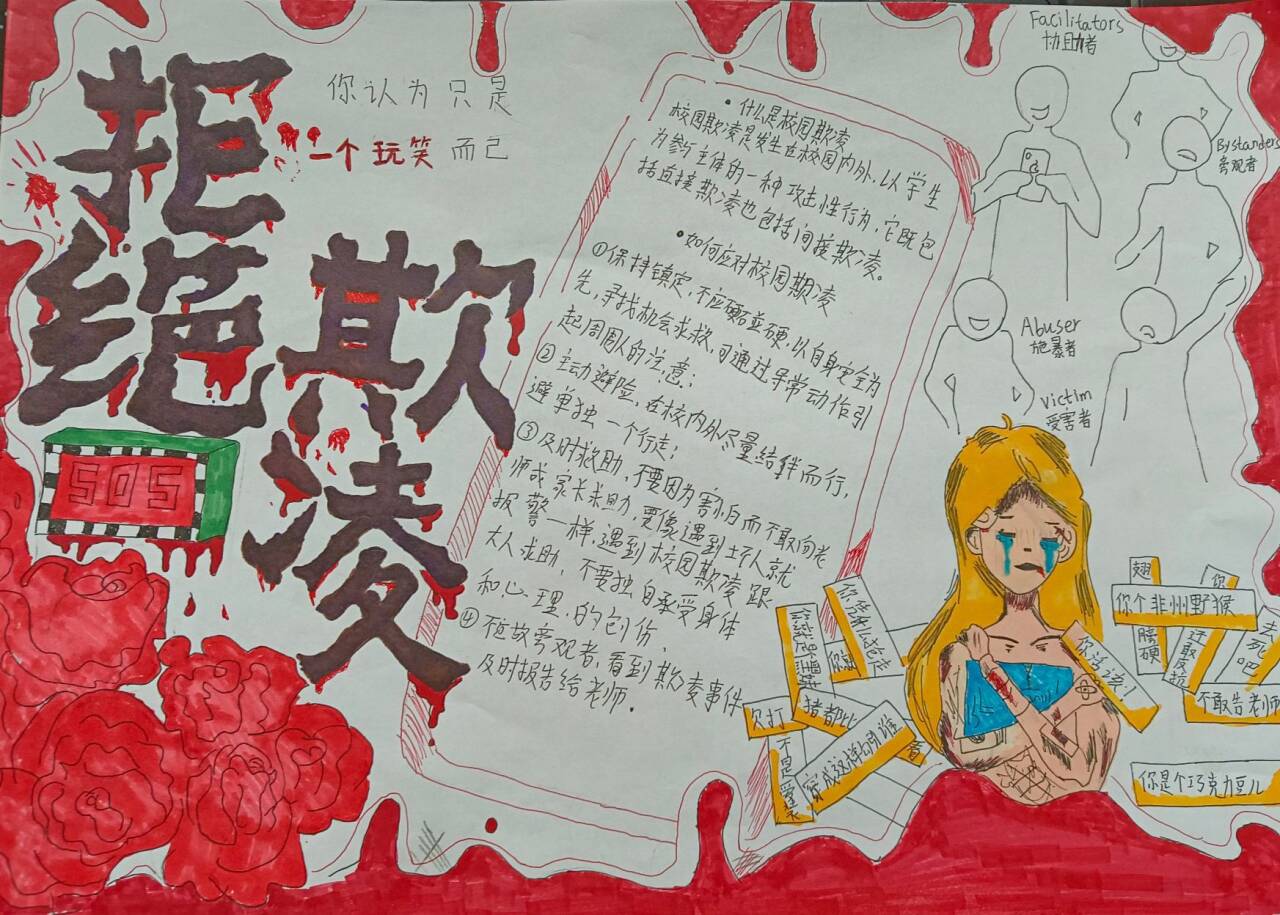 拒绝
欺凌
你认为只是
一个玩笑而已
SOS
•什么是校园欺凌
校园欺凌是发生在校园内外,以学生
为参与主体的一种攻击性行为,它既包
括直接欺凌也包括间接欺凌。
•如何应对校园期凌
①保持镇定,不应硬碰硬,以自身安全为
先,寻找机会求救,可通过异常动作引
起周围人的注意;
②主动避险,在校内外尽量结绊而行,
避单独一个行走;
③及时救助,不要因为害怕而不敢向老
师或家长求助,要像遇到坏人就
报警一样,遇到校园欺凌跟
大人求助,不要独自承受身体
和心理,的创伤、
④不应故旁观者,看到欺凌事件
及时报告给老师.
Facilitators
协助者
Bystanders
旁观者
Abuser
施暴者
victim
受害者
你就是个
欠打
猪都比
不是爱装
穿成这样勾引谁
你活该!
你个非州野猴
翅
你
膀硬
还敢反抗
去死吧
不敢告老师
你是个巧克力豆儿